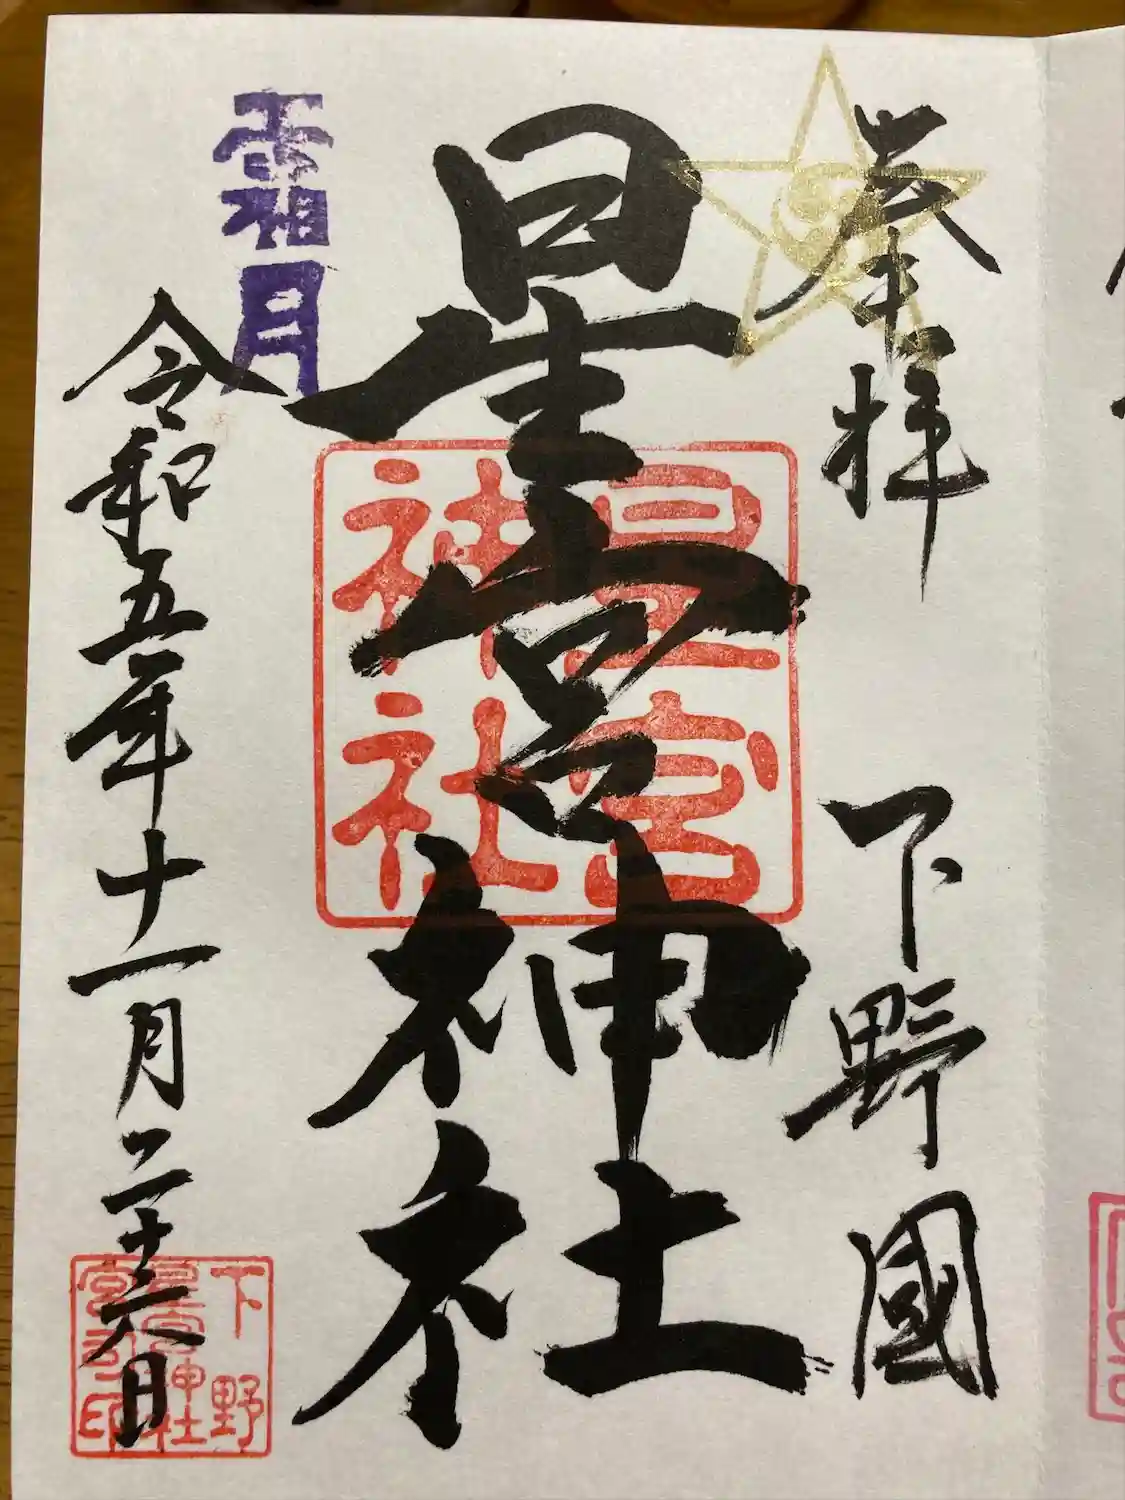 奉拝
下野國
星宮神社
星宮
神社
霜月
令和五年十一月二十六日
下野
星宮神社
宮司印